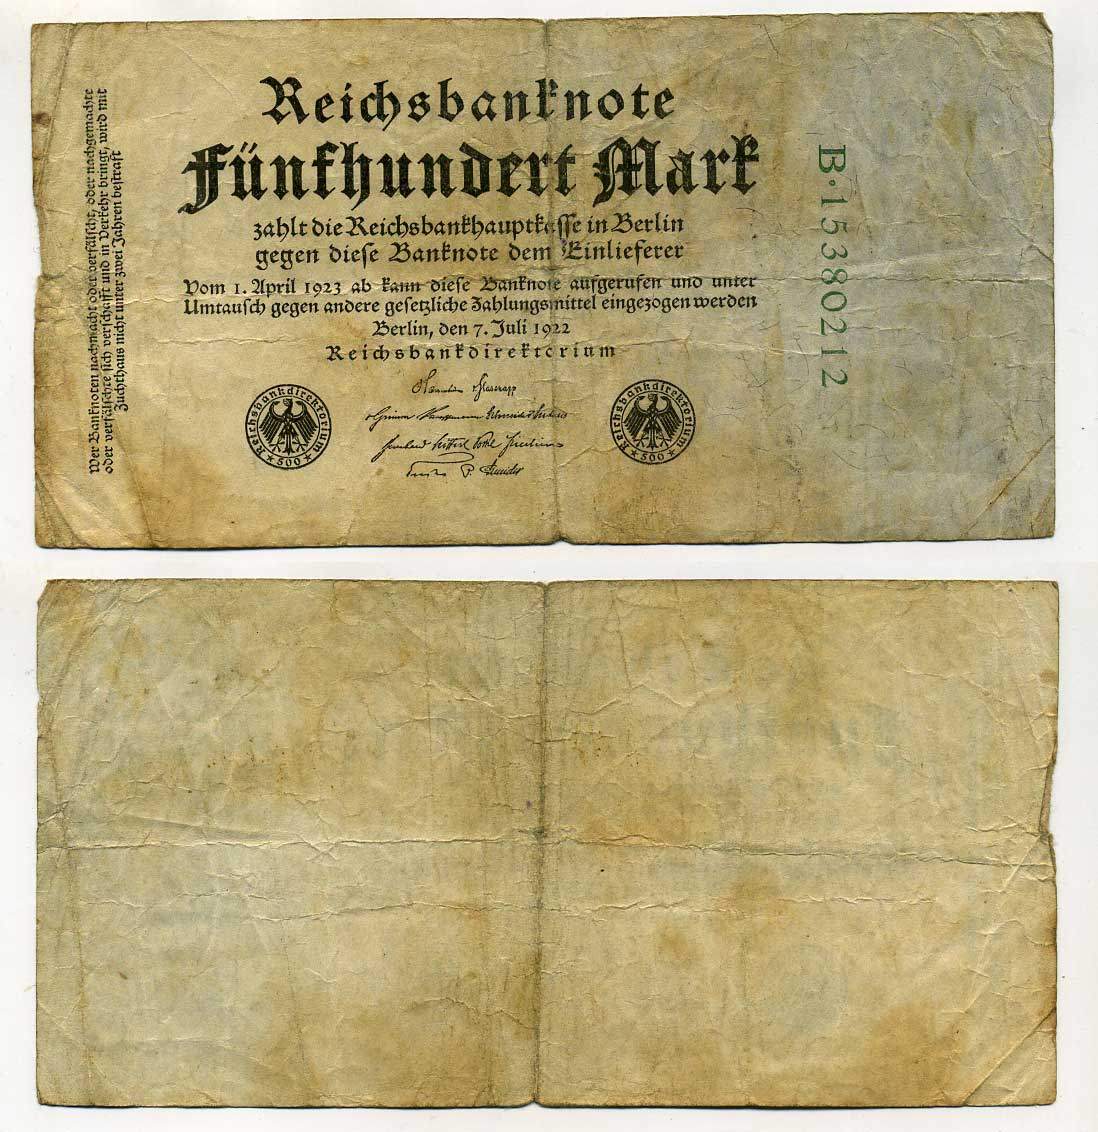 Reichsbanknote
Fünfhundert Mark
zahlt die Reichsbankhauptkasse in Berlin
gegen diese Banknote dem Einlieferer
Vom 1. April 1923 ab kann diese Banknote aufgerufen und unter
Umtausch gegen andere gesetzliche Zahlungsmittel eingezogen werden
Berlin, den 7. Juli 1922
Reichsbankdirektorium
Reichsbankdirektorium
500
Reichsbankdirektorium
500
Wer Banknoten nachmacht oder verfälscht, oder nachgemachte
oder verfälschte sich verschafft und in Verkehr bringt, wird mit
Zuchthaus nicht unter zwei Jahren bestraft
B·15380212